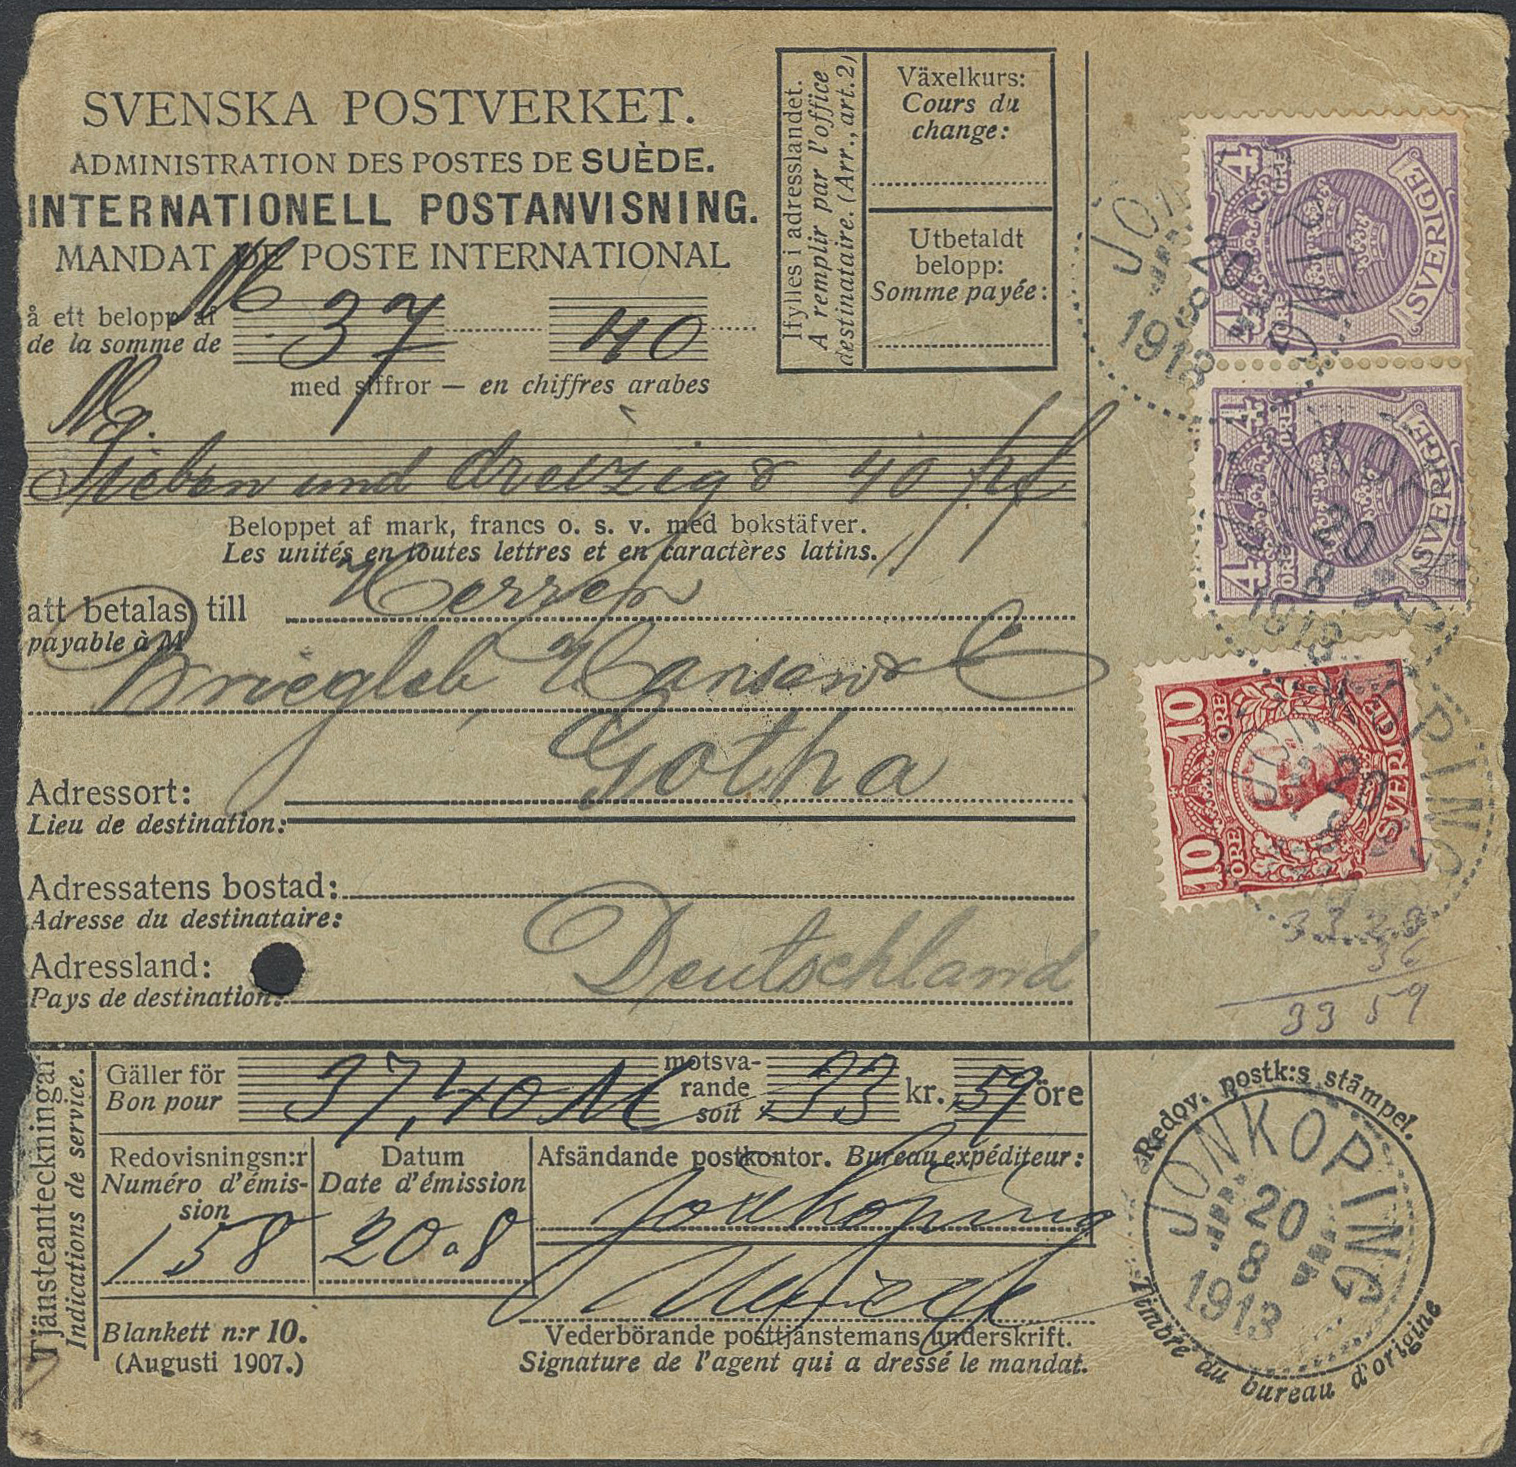 SVENSKA POSTVERKET.
ADMINISTRATION DES POSTES DE SUÈDE.
INTERNATIONELL POSTANVISNING.
MANDAT DE POSTE INTERNATIONAL
å ett belopp af
de la somme de
M 37 40
med siffror — en chiffres arabes
M.
Sieben und dreizig & 40 pf
Beloppet af mark, francs o. s. v. med bokstäfver.
Les unités en toutes lettres et en caractères latins.
att betalas till
payable à M
Herren
Briegleb, Hansen & C
Gotha
Adressort:
Lieu de destination:
Adressatens bostad:
Adresse du destinataire:
Adressland:
Pays de destination:
Deutschland
Ifylles i adresslandet.
A remplir par l'office
destinataire. (Arr., art. 2)
Växelkurs:
Cours du
change:
Utbetaldt
belopp:
Somme payée:
4 4
ÖRE ÖRE
SVERIGE
4 4
ÖRE ÖRE
SVERIGE
10 10
ÖRE ÖRE
SVERIGE
JÖNKÖPING
20
8
1913
33.23
36
33 59
Tjänsteanteckningar
Indications de service.
Gäller för
Bon pour
37,40 M
motsva-
rande
soit
33 kr. 59 öre
Redovisningsn:r
Numéro d'émis-
sion
158
Datum
Date d'émission
20.8
Afsändande postkontor. Bureau expéditeur:
Jönköping
Vederbörande posttjänstemans underskrift.
Signature de l'agent qui a dressé le mandat.
Blankett n:r 10.
(Augusti 1907.)
Redov. postk:s stämpel.
JÖNKÖPING
20
8
1913
Timbre du bureau d'origine